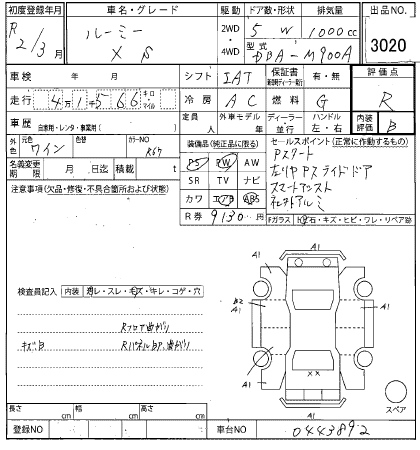 初度登録年月 車名・グレード 駆動 ドア数・形状 排気量 出品NO.
R 2/3月 ルーミー X S 2WD ・ 4WD 5 W 1000cc 3020
型式 DBA-M900A
車検 年 月 シフト IAT 保証書 有・無 評価点
走行 4万1千566 キロ マイル 冷房 AC 燃料 G R
車歴 自家用・レンタ・事業用( ) 定員 人 外車モデル 年 ディーラー 並行 ハンドル 左・右 内装評価 B
外色 元色 ワイン 色替 カラーNO R67 装備品(純正品に限る) セールスポイント(正常に作動するもの)
名義変更期限 月 日迄 積載 t PS PW AW Pスタート
注意事項(欠品・修復・不具合箇所および状態) SR TV ナビ 左リヤPスライドドア
カワ エアB ABS スマートアシスト
R券 9130 社外アルミ
Fガラス
検査員記入 内装
Rフロア曲がり
キズ凹 Rパネル凹P、曲がり
A1 A1 A1 B2 A1 A1 A1 A1 XX
スペア
長さ cm 幅 cm 高さ cm
登録NO 車台NO 0443892